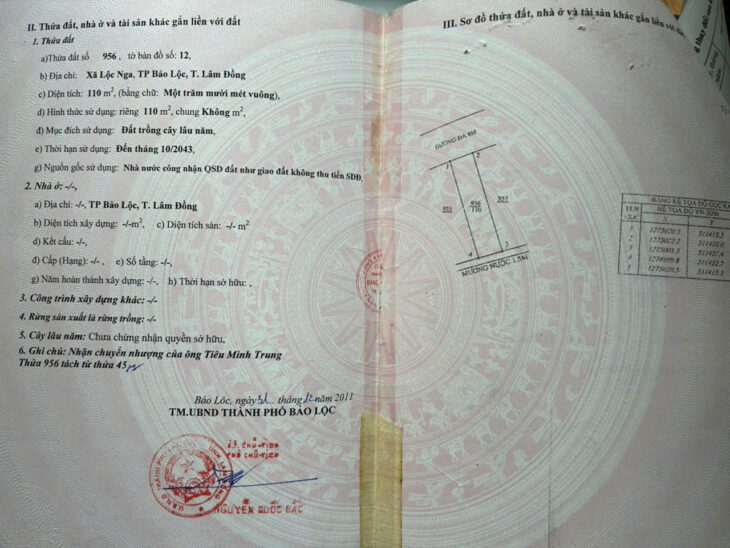 II. Thửa đất, nhà ở và tài sản khác gắn liền với đất
1. Thửa đất
a)Thửa đất số 956, tờ bản đồ số: 12,
b) Địa chỉ: Xã Lộc Nga, TP Bảo Lộc, T. Lâm Đồng
c) Diện tích: 110 m², (bằng chữ: Một trăm mười mét vuông),
d) Hình thức sử dụng: riêng 110 m², chung Không m²,
đ) Mục đích sử dụng: Đất trồng cây lâu năm,
e) Thời hạn sử dụng: Đến tháng 10/2043,
g) Nguồn gốc sử dụng: Nhà nước công nhận QSD đất như giao đất không thu tiền SDĐ,
2. Nhà ở: -/-,
a) Địa chỉ: -/-, TP Bảo Lộc, T. Lâm Đồng
b) Diện tích xây dựng: -/-m², c) Diện tích sàn: -/- m²
d) Kết cấu: -/-,
đ) Cấp (Hạng): -/- , e) Số tầng: -/-,
g) Năm hoàn thành xây dựng: -/-, h) Thời hạn sở hữu: ,
3. Công trình xây dựng khác: -/-
4. Rừng sản xuất là rừng trồng: -/-
5. Cây lâu năm: Chưa chứng nhận quyền sở hữu,
6. Ghi chú: Nhận chuyển nhượng của ông Tiêu Minh Trung
Thửa 956 tách từ thửa 45
Bảo Lộc, ngày 31 tháng 12 năm 2011
TM.UBND THÀNH PHỐ BẢO LỘC
K.T. CHỦ TỊCH
PHÓ CHỦ TỊCH
NGUYỄN QUỐC BẮC
III. Sơ đồ thửa đất, nhà ở và tài sản khác gắn liền với
ĐƯỜNG ĐÁ 8M
1
2
956
110
957
4
3
MƯƠNG NƯỚC 1.5M
BẢNG KÊ TỌA ĐỘ GÓC
HỆ TỌA ĐỘ VN-2000
X Y